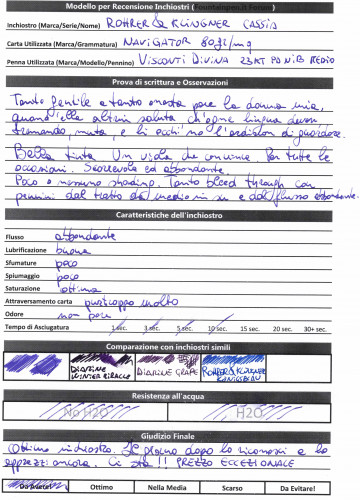 Modello per Recensione Inchiostri (Fountainpen.it Forum)
Inchiostro (Marca/Serie/Nome) ROHRER & KLINGNER CASSIA
Carta Utilizzata (Marca/Grammatura) NAVIGATOR 80
Penna Utilizzata (Marca/Modello/Pennino) VISCONTI DIVINA 23KT Pd NIB MEDIO
Prova di scrittura e Osservazioni
Tanto gentile e tanto onesta pare la donna mia,
quand'ella altrui saluta ch'ogne lingua deven
tremando, muta, e li occhi no l'ardiscon di guardare.
Bella tinta. Un viola che conviene per tutte le
occasioni. Scorrevole ed abbondante.
Poco o nessuno shading. Tanto bleed through con
pennini dal tratto da medio in su e dal flusso abbondante.
Caratteristiche dell'inchiostro
Flusso abbondante
Lubrificazione buona
Sfumature poco
Spiumaggio poco
Saturazione ottima
Attraversamento carta purtroppo molto
Odore non pare
Tempo di Asciugatura 1 sec. 3 sec. 5 sec. 10 sec. 15 sec. 20 sec. 30+ sec.
Comparazione con inchiostri simili
DIAMINE WINTER MIRACLE DIAMINE GRAPE ROHRER & KLINGNER KÖNIGSBLAU
Resistenza all'acqua
No H2O H2O
Giudizio Finale
Ottimo inchiostro. Un giorno dopo lo riconosci e lo
apprezzi ancora. Ci sta!! PREZZO ECCEZIONALE
Da Avere! Ottimo Nella Media Scarso Da Evitare!